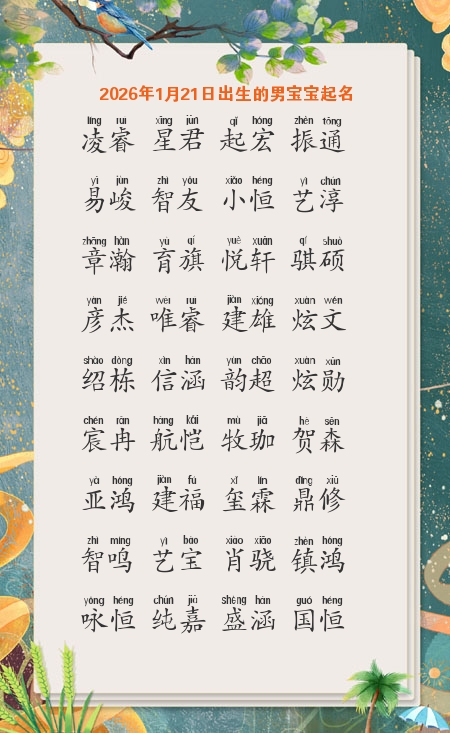 2026年1月21日出生的男宝宝起名
líng ruì xīng jūn qǐ hóng zhèn tōng
凌睿 星君 起宏 振通
yì jùn zhì yǒu xiǎo héng yì chún
易峻 智友 小恒 艺淳
zhāng hàn yù qí yuè xuān qí shuò
章瀚 育旗 悦轩 骐硕
yàn jié wéi ruì jiàn xióng xuàn wén
彦杰 唯睿 建雄 炫文
shào dòng xìn hán yùn chāo xuàn xūn
绍栋 信涵 韵超 炫勋
chén rǎn háng kǎi mù jiā hè sēn
宸冉 航恺 牧珈 贺森
yà hóng jiàn fú xǐ lín dǐng xiū
亚鸿 建福 玺霖 鼎修
zhì míng yì bǎo xiào xiāo zhèn hóng
智鸣 艺宝 肖骁 镇鸿
yǒng héng chún jiā shèng hán guó héng
咏恒 纯嘉 盛涵 国恒